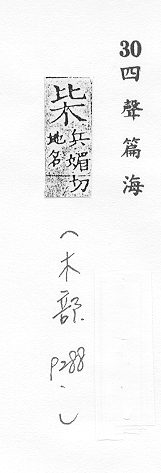 30四聲篇海
枈
兵媚切
地名
(木部
P288.)